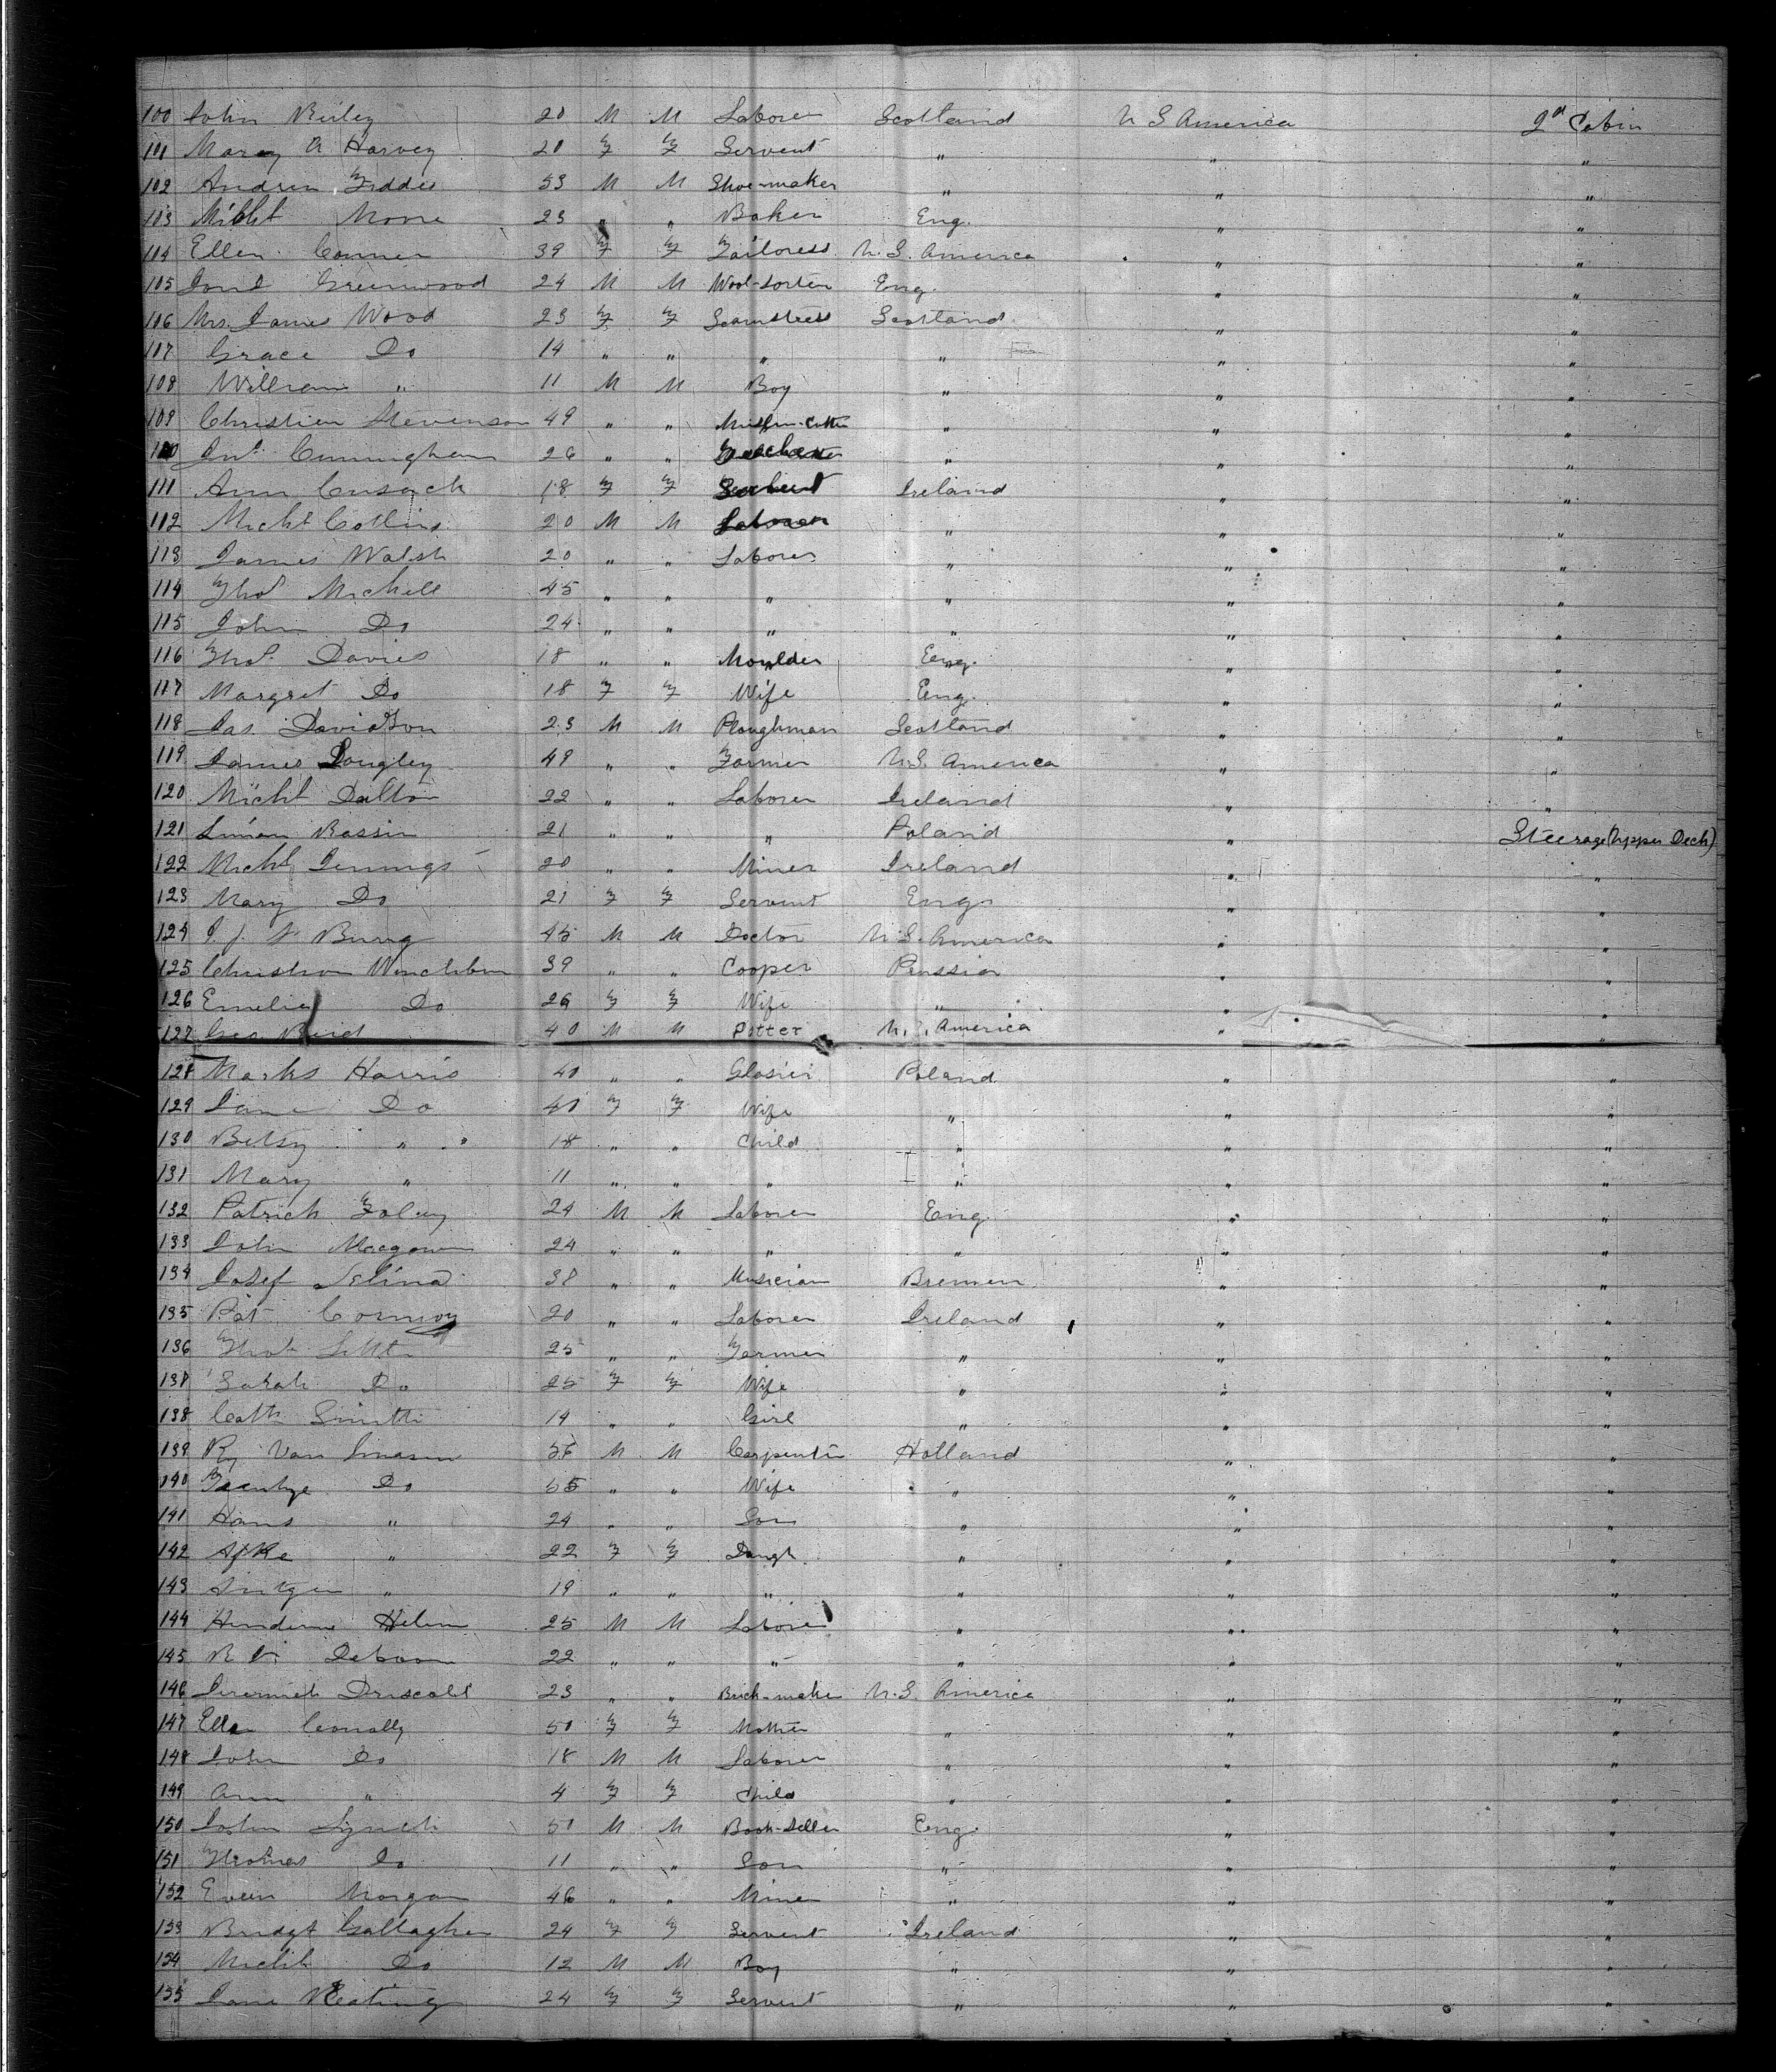 100 John Reiley 20 M M Laborer Scotland U S America 2d Cabin
101 Mary A Harvey 20 F F Servent " " "
102 Andrew Fiddes 53 M M Shoe-maker " " "
103 Michl Moore 23 " " Baker Eng. " "
104 Ellen Conner 39 F F Tailoress U.S. America " "
105 Greenwood 24 M M Wool-sorter Eng. " "
106 Mrs. James Wood 23 F F Seamstress Scotland " "
107 Grace Do 14 " " " " " "
108 William " 11 M M Boy " " "
109 Christien Stevenson 49 " " " " "
110 Jno. Cunningham 26 " " " " "
111 Ann Cusack 18 F F Servent Ireland " "
112 Michl Collins 20 M M Laborer " " "
113 James Walsh 20 " " Laborer " " "
114 Thos Michell 45 " " " " " "
115 John Do 24 " " " " " "
116 Thos. Davies 18 " " Moulder Eng. " "
117 Margret Do 18 F F Wife Eng. " "
118 Jas. Davidson 23 M M Ploughman Scotland " "
119 James Longley 49 " " Farmer U.S. America " "
120 Michl Dalton 22 " " Laborer Ireland " "
121 Simon Bassin 21 " " " Poland " Steerage (Upper Deck)
122 Michl Jennings 20 " " Miner Ireland " "
123 Mary Do 21 F F Servent Eng. " "
124 45 M M Doctor U.S. America " "
125 39 " " Cooper Prussia " "
126 Emelie Do 26 F F Wife " " "
127 Geo. 40 M M Potter U.S. America " "
128 Marks Harris 40 " " Glasier Poland " "
129 Jane Do 40 F F Wife " " "
130 Betsy " 18 " " Child " " "
131 Mary " 11 " " " " " "
132 Patrick Foley 24 M M Laborer Eng. " "
133 John Macgowen 24 " " " " " "
134 Josef Selina 38 " " Musician Bremen " "
135 Pat 20 " " Laborer Ireland " "
136 Thos 25 " " Farmer " " "
137 Sarah Do 25 F F Wife " " "
138 Cath Smith 14 " " Girl " " "
139 Van 56 M M Carpenter Holland " "
140 Do 55 " " Wife " " "
141 Hans " 24 " " Son " " "
142 Afke " 22 F F Daugh. " " "
143 " 19 " " " " " "
144 25 M M Laborer " " "
145 Deboom 22 " " " " " "
146 Jeremiah Driscoll 23 " " Brick-maker U.S. America " "
147 Ellen Conolly 50 F F Mother " " "
148 John Do 18 M M Laborer " " "
149 Ann " 4 F F Child " " "
150 John Lynch 50 M M Book-seller Eng. " "
151 Thomas Do 11 " " Son " " "
152 Evein Morgan 46 " " Miner " " "
153 Bridgt Gallagher 24 F F Servent Ireland " "
154 Michl Do 12 M M Boy " " "
155 Jane Keating 24 F F Servent " " "